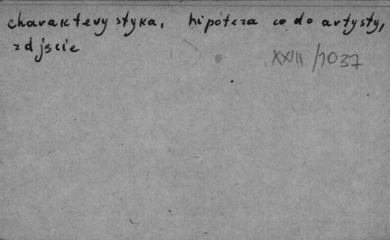 charakterystyka, hipoteza co do artysty,
zdjście
XXIII/1037